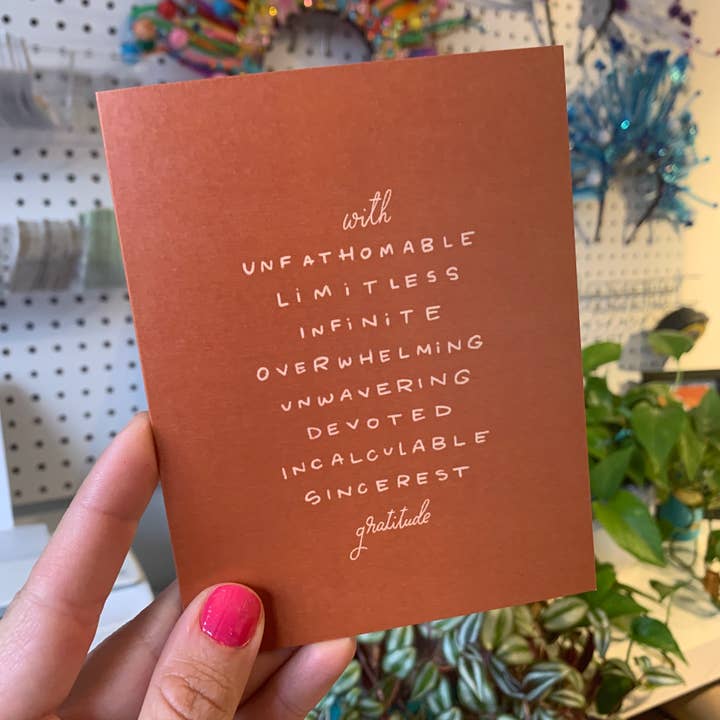 with
UNFATHOMABLE
LiMiTLESS
INFiNiTE
OVERWHELMiNG
UNWAVERING
DEVOTED
INCALCULABLE
SINCEREST
gratitude